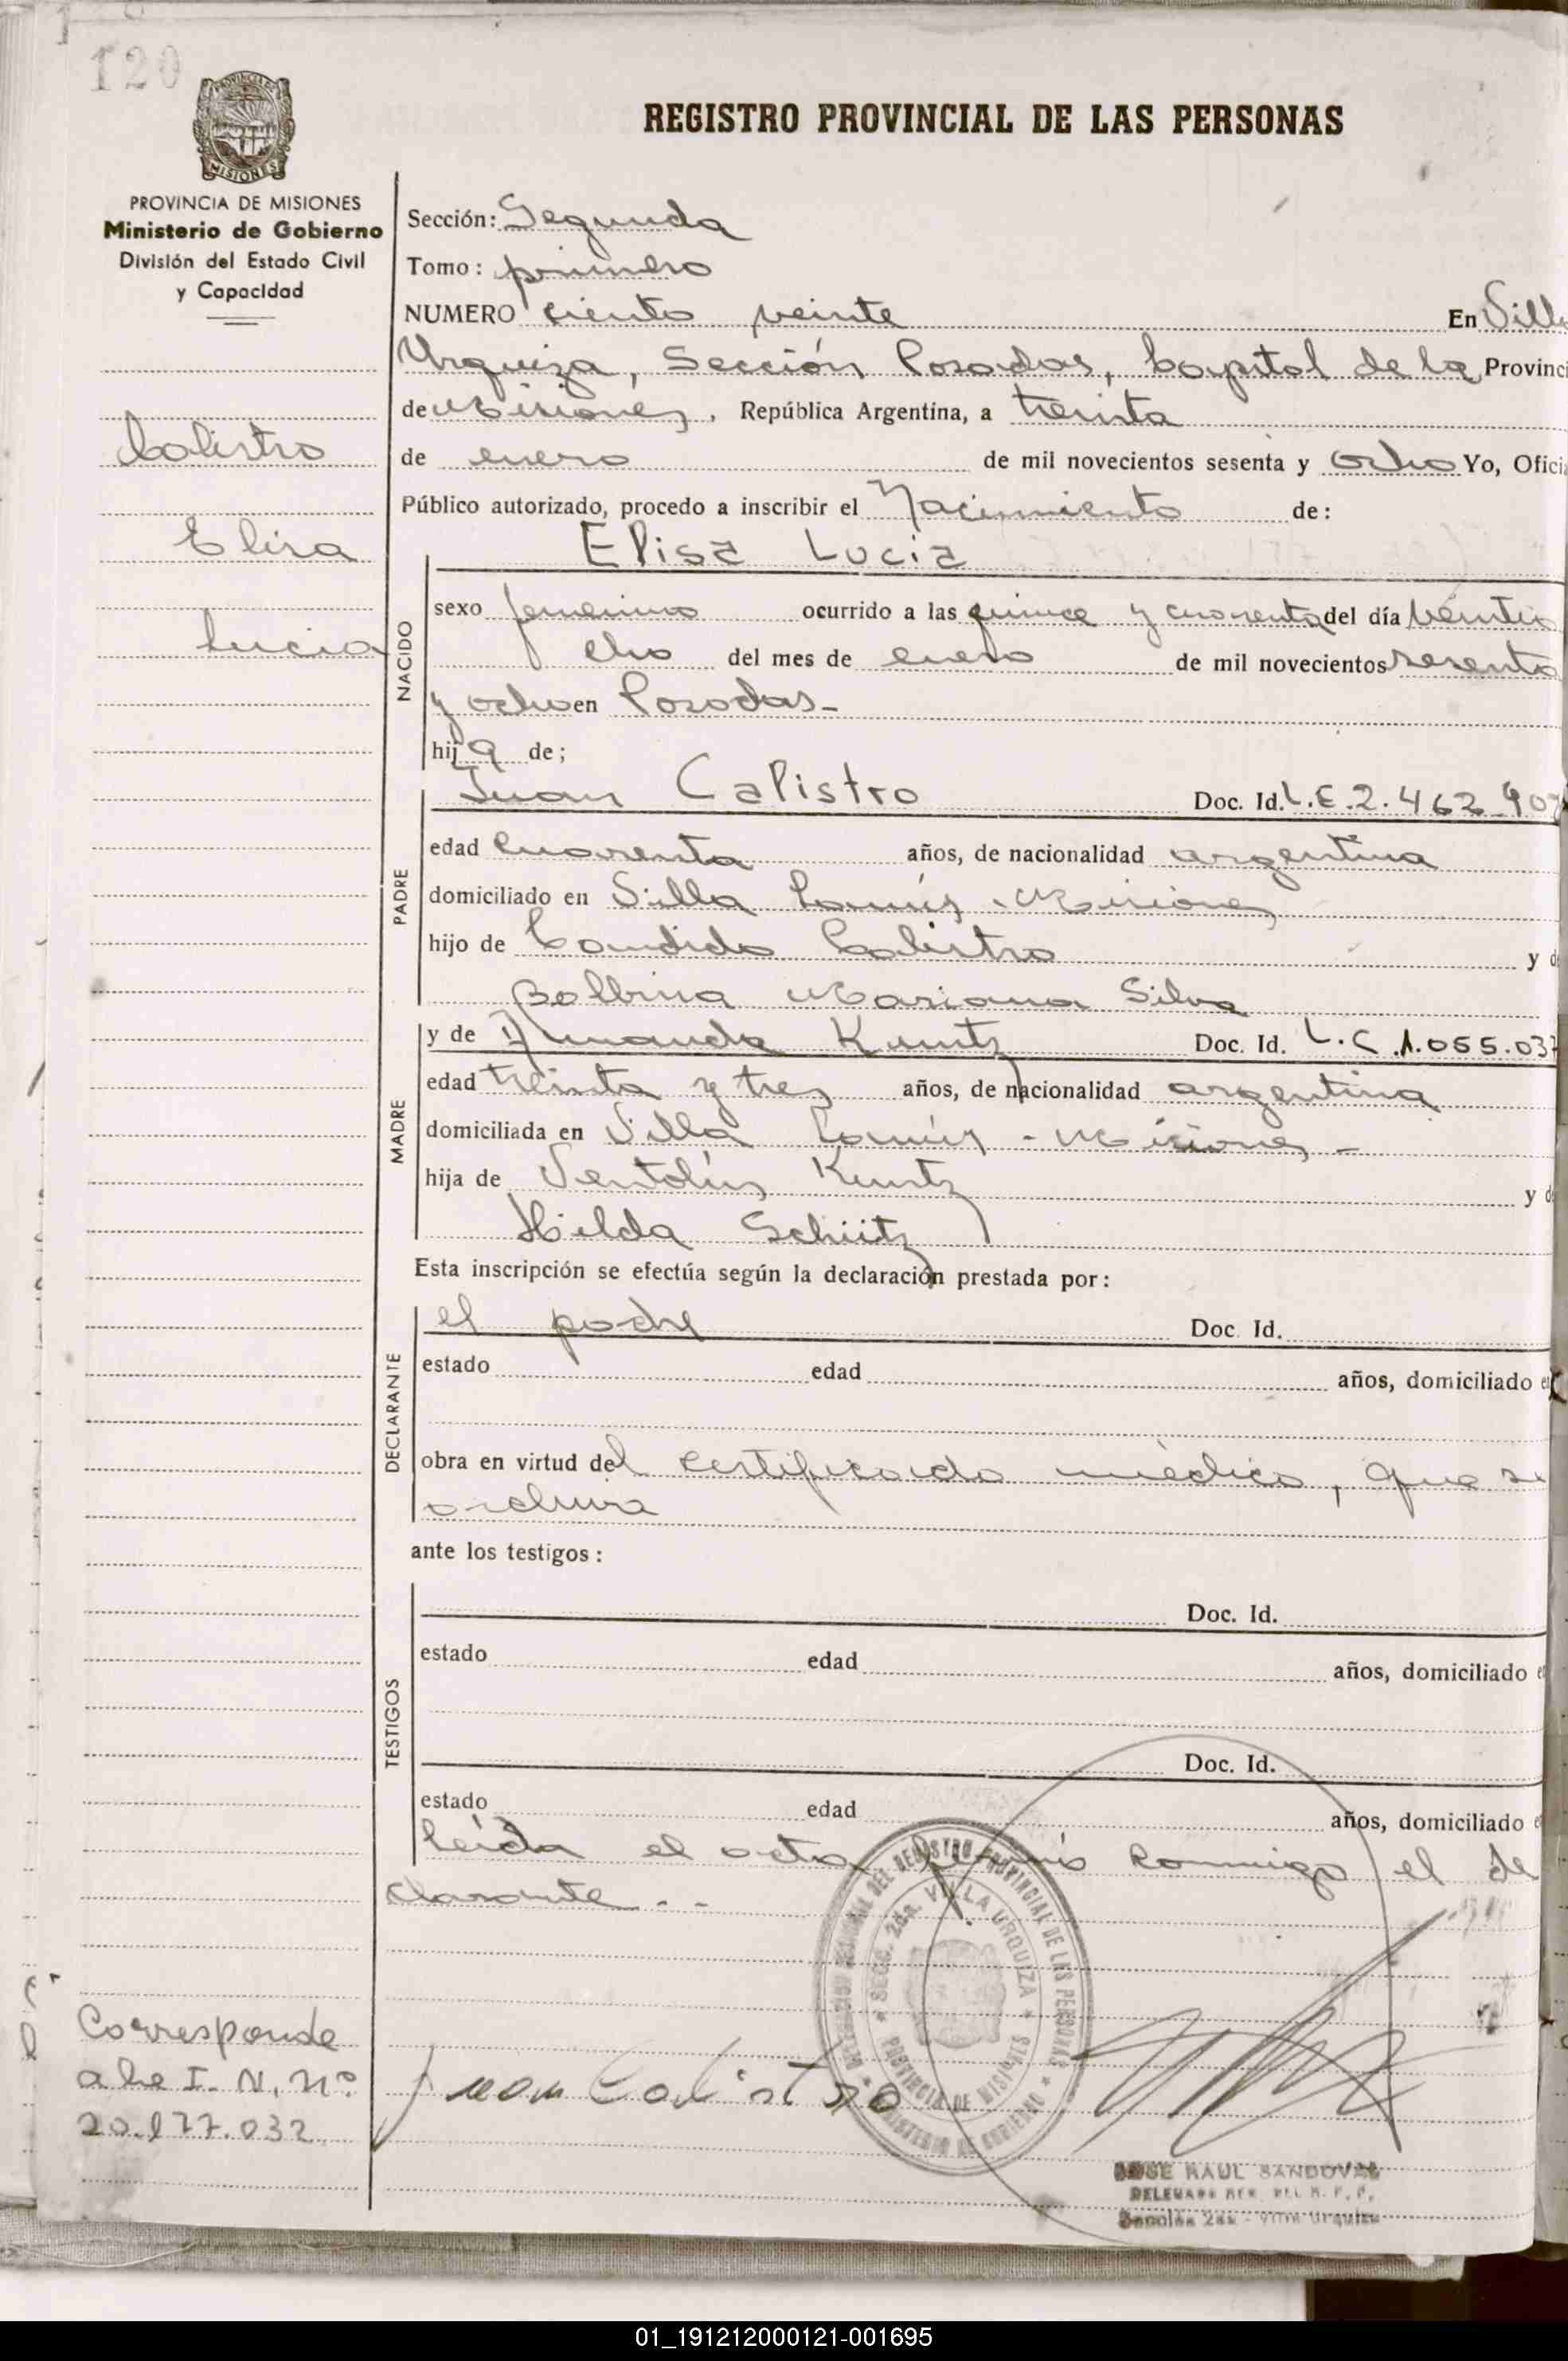 120
REGISTRO PROVINCIAL DE LAS PERSONAS
MISIONES
PROVINCIA DE MISIONES
Ministerio de Gobierno
División del Estado Civil
y Capacidad
Sección: Segunda
Tomo: primero
NUMERO ciento veinte En Villa
Urquiza, Sección Posadas, Capital de la Provinci
de Misiones, República Argentina, a treinta
de enero de mil novecientos sesenta y ocho Yo, Ofici
Público autorizado, procedo a inscribir el Nacimiento de:
Calistro
Elisa
Lucia
Elisa Lucia
NACIDO
sexo femenino ocurrido a las quince y cuarenta del día veintio
cho del mes de enero de mil novecientos sesenta
y ocho en Posadas-
hija de;
PADRE
Juan Calistro Doc. Id. L.E.2.462.907
edad cuarenta años, de nacionalidad argentina
domiciliado en Villa Lanús - Misiones
hijo de Candido Calistro y d
Balbina Mariana Silva
MADRE
y de Amanda Kuntz Doc. Id. L.C 1.055.037
edad treinta y tres años, de nacionalidad argentina
domiciliada en Villa Lanús - Misiones -
hija de Ventolín Kuntz y d
Hilda Schütz
Esta inscripción se efectúa según la declaración prestada por:
DECLARANTE
el padre Doc. Id.
estado edad años, domiciliado e
obra en virtud del certificado médico, que se
archiva
ante los testigos:
TESTIGOS
Doc. Id.
estado edad años, domiciliado e
Doc. Id.
estado edad años, domiciliado e
Leída el acta, firmó conmigo el de
clarante - -
DEL REGISTRO PROVINCIAL DE LAS PERSONAS
SECC. 2da. VILLA URQUIZA
PROVINCIA DE MISIONES
MINISTERIO DE GOBIERNO
Corresponde
a la I. N. nº
20.177.032
Juan Calistro
JOSE RAUL SANDOVAL
Sección 2da - Villa Urquiza
01_191212000121-001695